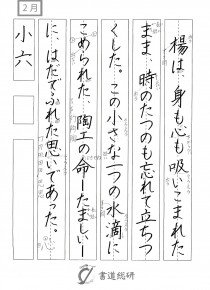 2月
楊は…身も心も吸いこまれた
まま…時のたつのも忘れて立ちつ
くした。この小さな一つの水滴に
こめられた…陶工の命ーたましいー
に、はだでふれた思いであった。
小六
書道総研